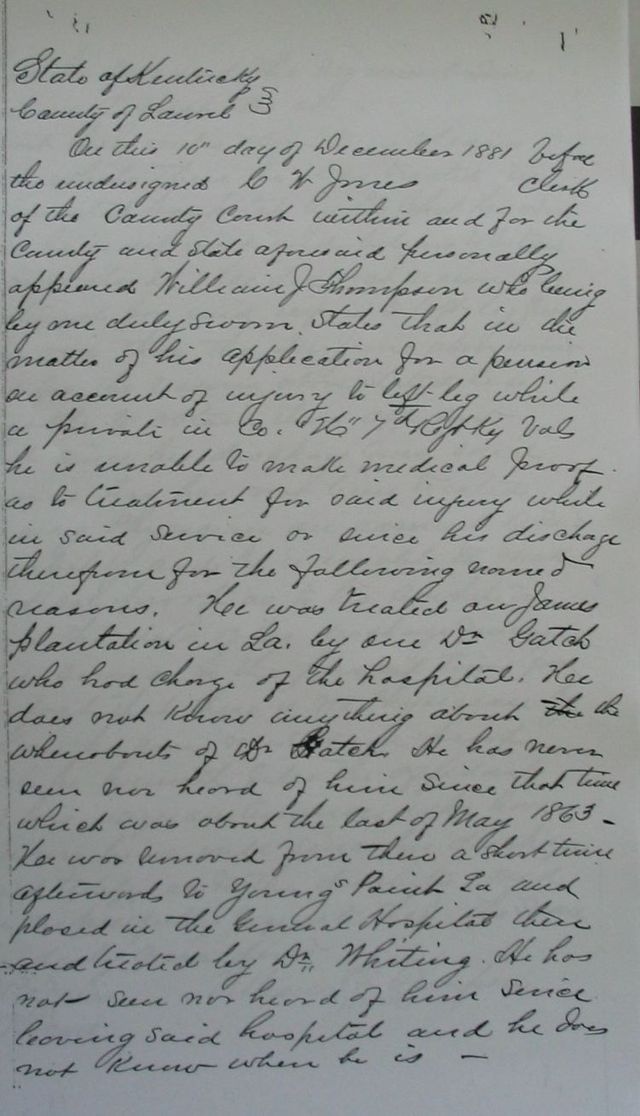 State of Kentucky
County of Laurel } SS
On this 10" day of December 1881 before
the undersigned C W Jones Clerk
of the County Court within and for the
County and State aforesaid personally
appeared William J Thompson who being
by me duly sworn, States that in the
matter of his application for a pension
on account of injury to left leg while
a private in Co. "H" 7th Regt Ky Vols
he is unable to make medical proof
as to treatment for said injury while
in said service or since his discharge
therefrom for the following named
reasons. He was treated on James
plantation in La. by one Dr Gatch
who had charge of the hospital. He
does not know anything about the the
whereabouts of Dr Gatch He has never
seen nor heard of him since that time
which was about the last of May 1863 -
He was removed from there a short time
afterwords to Youngs Point La and
placed in the General Hospital there
and treated by Dr Whiting. He has
not seen nor heard of him since
leaving said hospital and he does
not know where he is -